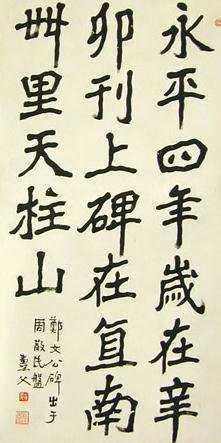 永平四年歲在辛
卯刊上碑在直南
卌里天柱山
鄭文公碑出于
周散氏盤
父